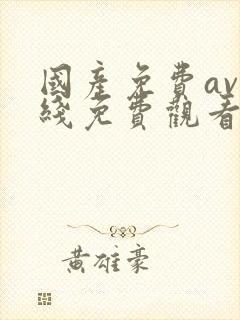 國產免費av
綫免費觀看
黃雄豪